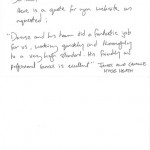 Here is a quote for your website as
requested :
"Darren and his team did a fantastic job
for us, working quickly and thoroughly
to a very high standard. His friendly and
professional service is excellent" James and Candice
Heath